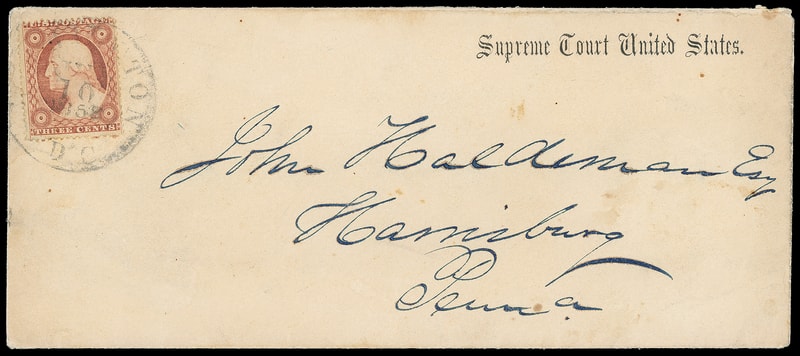 U.S. POSTAGE
THREE CENTS
TON
10
D.C.
Supreme Court United States.
John Haldeman Esq
Harrisburg
Penna.